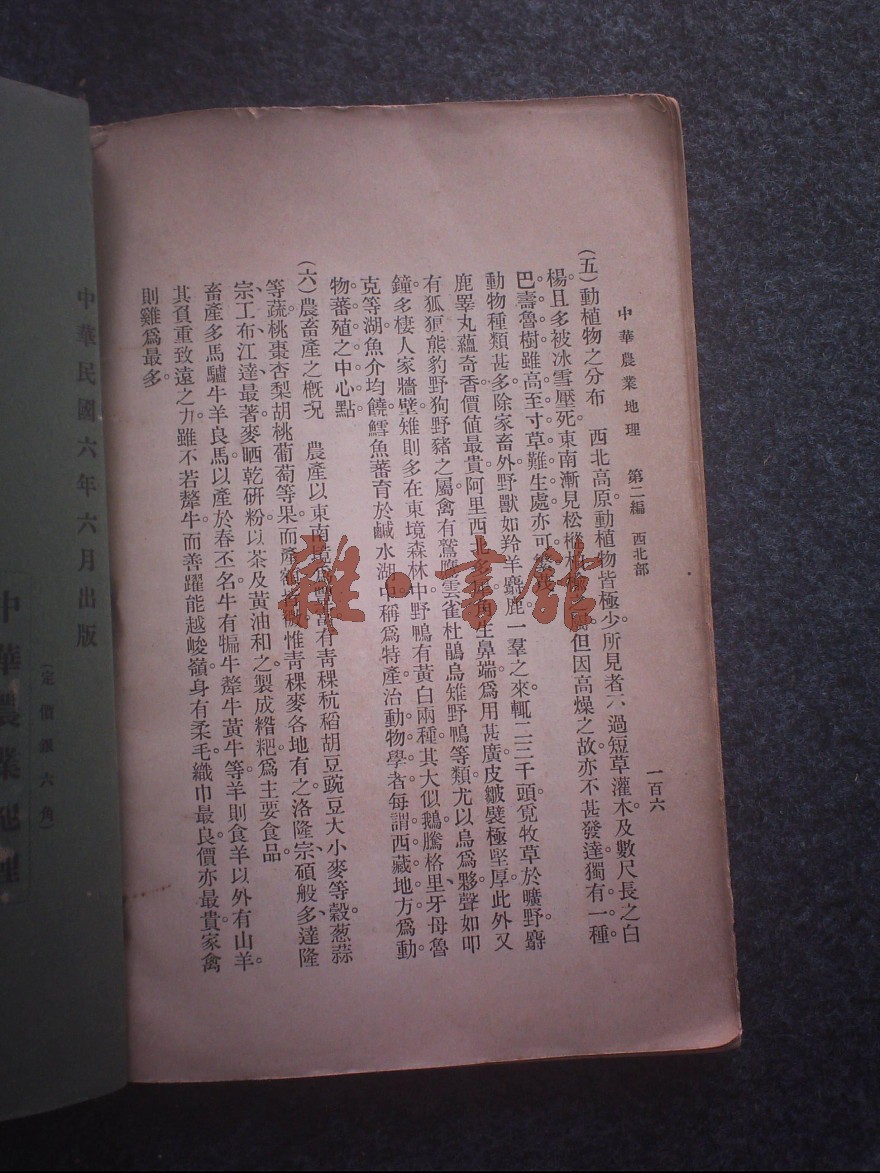 中華農業地理　第二編　西北部　一百六
(五)動植物之分布　西北高原動植物皆極少。所見者不過短草灌木。及數尺長之白
楊。且多被冰雪壓死。東南漸見松樅　但因高燥之故。亦不甚發達。獨有一種
巴壽魯樹。雖高至寸草難生處。亦可繁
動物種類甚多。除家畜外。野獸如羚羊麝鹿。一羣之來。輒二三千頭。覓牧草於曠野。麝
鹿睪丸蘊奇香。價值最貴。阿里西北多　角生鼻端。爲用甚廣。皮皺襞極堅厚。此外又
有狐狸熊豹野狗野豬之屬。禽有鷲鷹雲雀杜鵑鳥雉野鴨等類。尤以烏爲夥。聲如叩
鐘。多棲人家牆壁。雉則多在東境森林中。野鴨有黃白兩種。其大似鵝。騰格里牙母魯
克等湖。魚介均饒。鱈魚蕃育於鹹水湖中。稱爲特產。治動物學者。每謂西藏地方爲動
物蕃殖之中心點。
(六)農畜產之槪況　農產以東南境　有青稞秔稻胡豆豌豆大小麥等穀。葱蒜
等蔬。桃棗杏梨胡桃葡萄等果。而產額　惟靑稞麥各地有之。洛隆宗、碩般多、達隆
宗、工布江達、最著。麥晒乾研粉。以茶及黃油和之。製成糌粑。爲主要食品。
畜產多馬驢牛羊。良馬以產於春丕名。牛有犏牛犛牛黃牛等。羊則食羊以外有山羊。
其負重致遠之力。雖不若犛牛。而善躍能越峻嶺。身有柔毛。織巾最良。價亦最貴。家禽
則雞爲最多。
雜·書館
中華民國六年六月出版
(定價銀六角)
中華農業地理